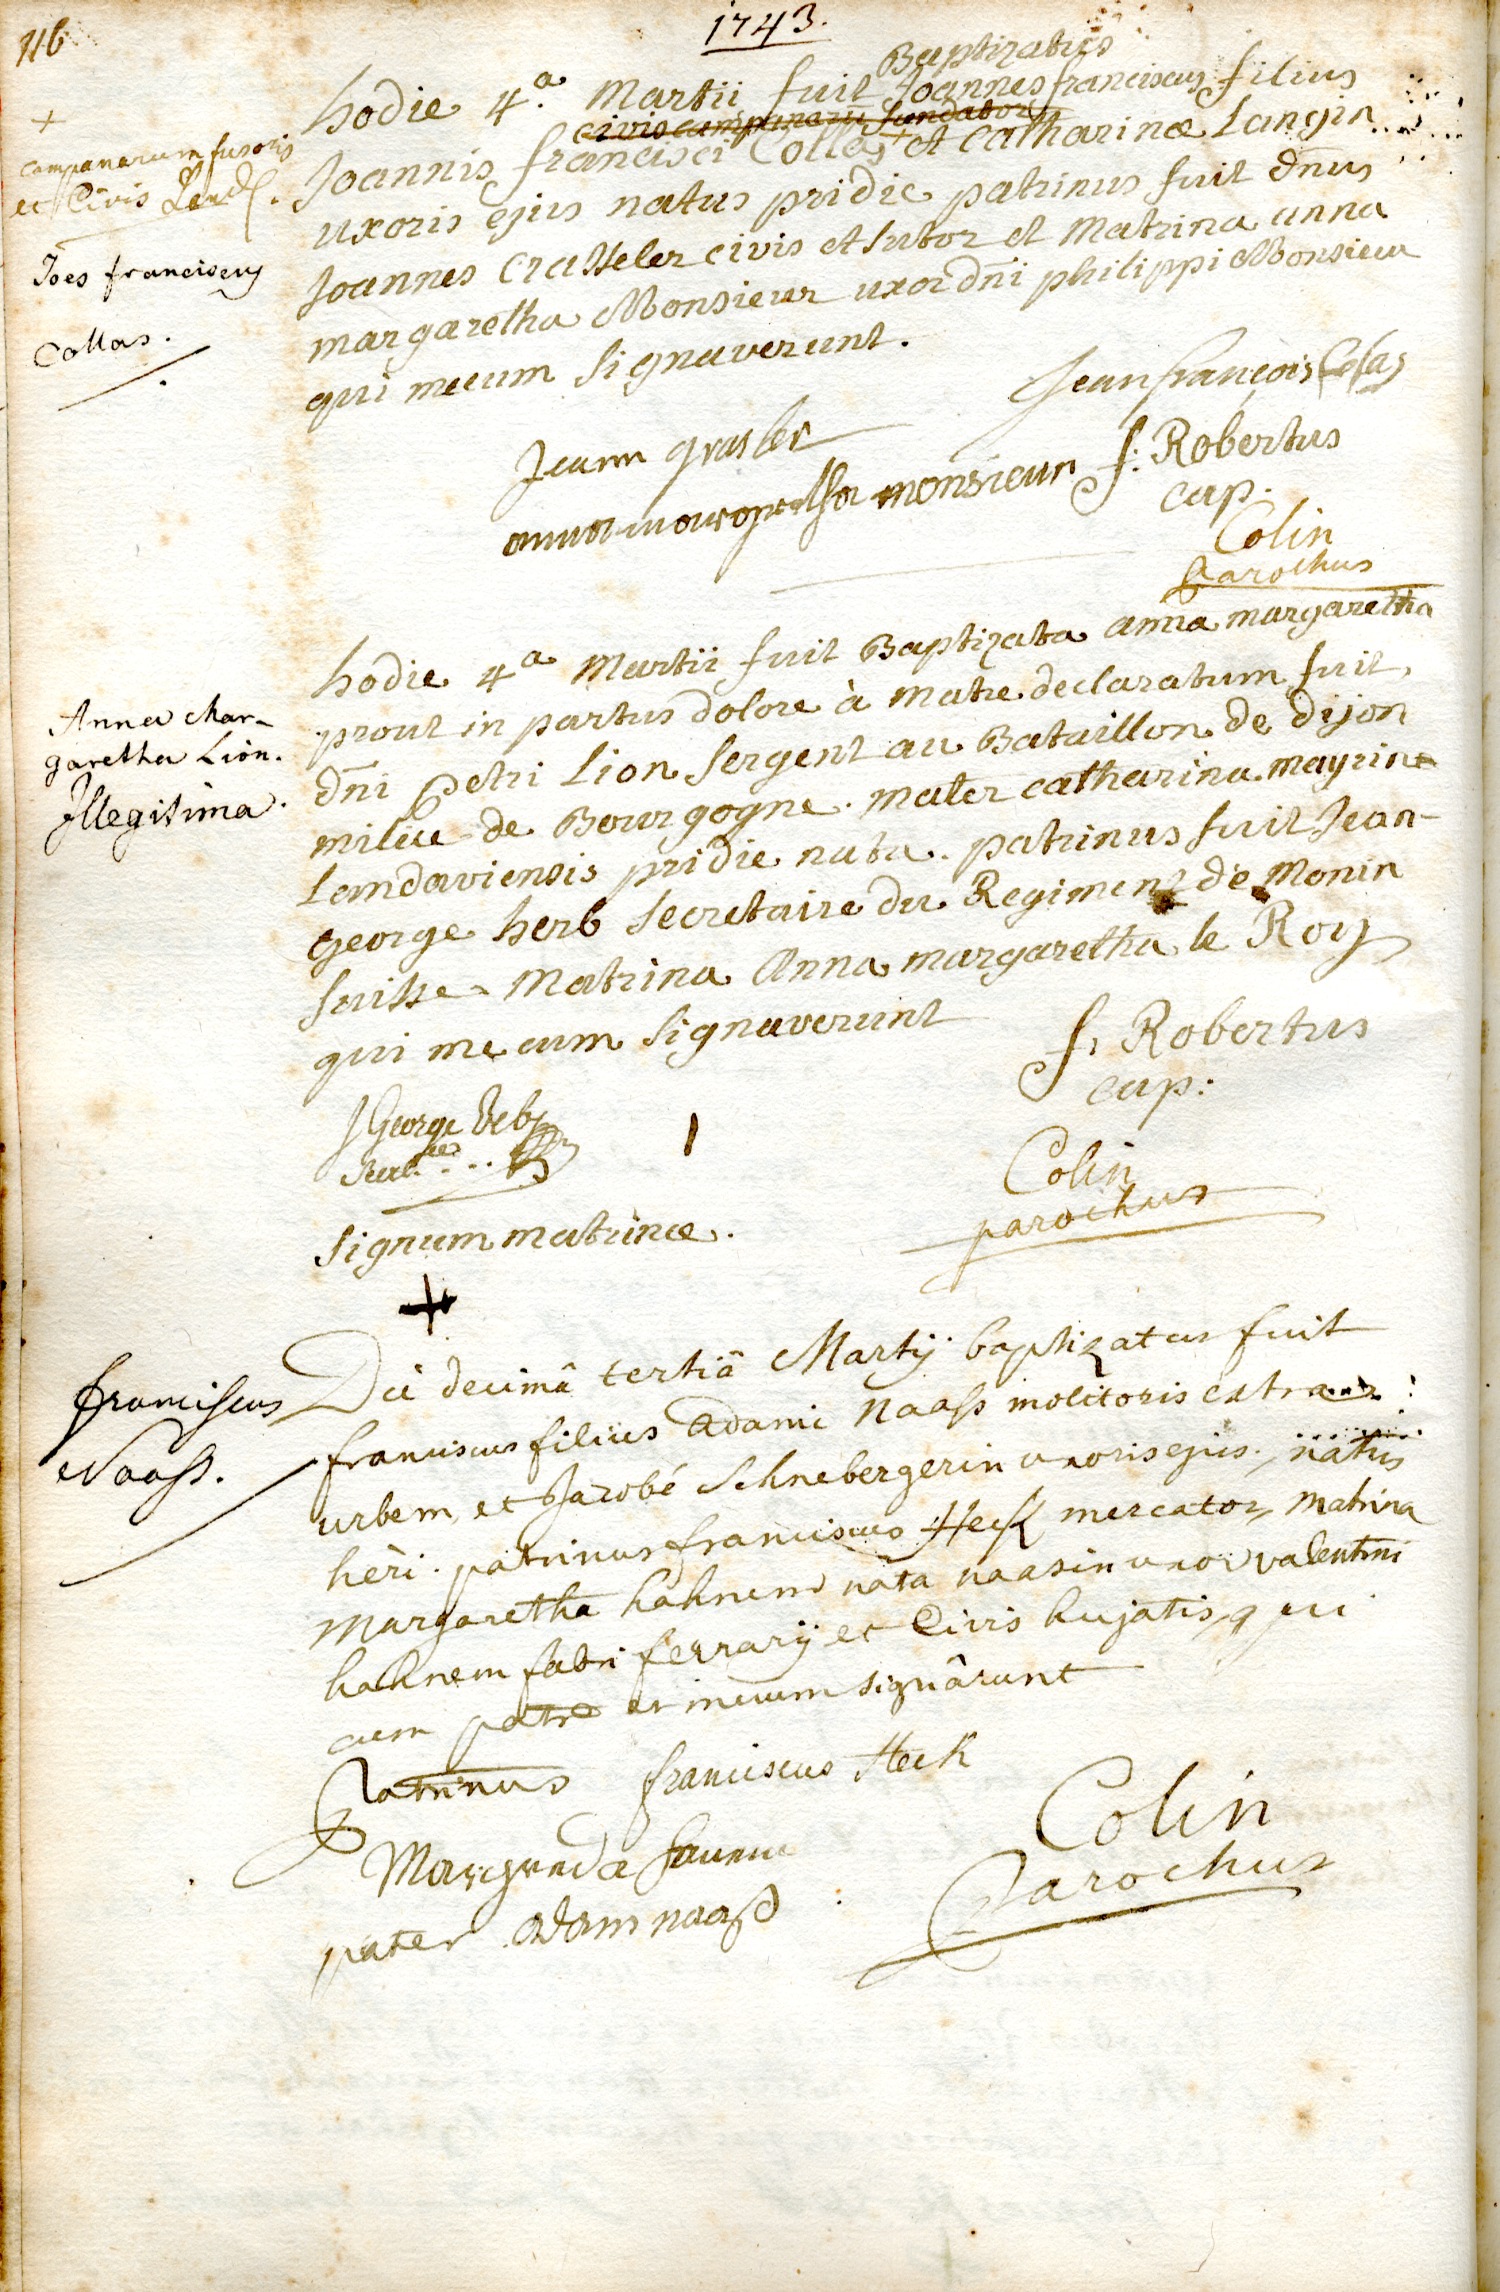 116
1743.
Baptizatus
hodie 4.a Martii fuit Joannes franciscus filius
civis campanarũ fundator
Joannis francisci Collas + et Catharinæ Langin
uxoris ejus natus pridie patrinus fuit dñus
Joannes Crasseler civis et sutor et Matrina anna
margaretha Monsieur uxor dñi philippi Monsieur
qui mecum signaverunt.
+
campanarum fusoris
et Civis Land.
Joes franciscus
Collas.
Jean françois Colas
Jeann grasler
anna margretha monsieur
f: Robertus
cap.
Colin
Parochus
hodie 4a Martii fuit Baptizata anna margaretha
prout in partus dolore à matre declaratum fuit,
dñi Petri Lion sergent au Bataillon de dijon
milice de Bourgogne. mater catharina mayrine
Landaviensis pridie nata. patrinus fuit Jean-
George herb secretaire du Regiment de Monin
suisse Matrina Anna margaretha le Roy
qui me cum signaverunt
Anna Mar-
garetha Lion.
Illegitima.
f. Robertus
cap:
J George
Colin
parochus
signum matrinæ.
+
Die decimâ tertiâ Martij baptizatus fuit
franciscus filius Adami Naass molitoris extra
urbem, et Jacobé Schnebergerin uxoris ejus, natus
heri. patrinus franciscus Heck mercator, matrina
Margaretha hahnem nata naasin uxor valentini
hahnem fabri ferrarij et Civis hujatis, qui
cum patre et mecum signârunt
franciscus
Naass.
Patrinus franciscus Heck
pater adam naass
Colin
Parochus